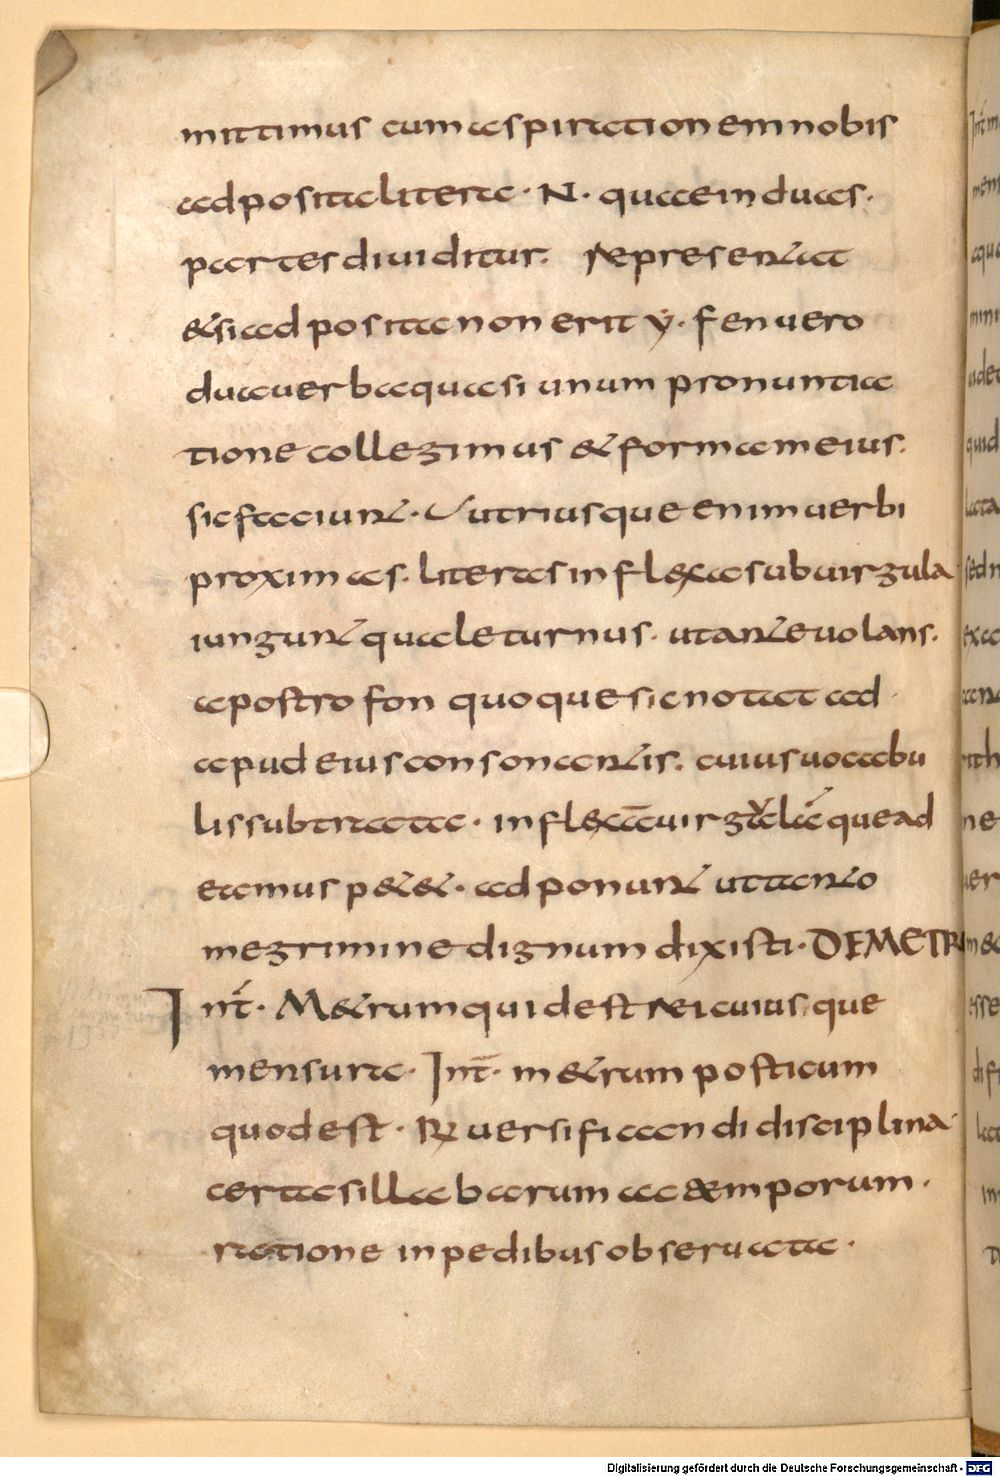 mittimus cum aspirationem nobis
adposita litera · N · quae in duas ·
partes diuiditur. repraesentat
& si adposita non erit ẏ · fen uero
dua uerba quasi unum pronuntia
tione collegimus & formam eius.
sic faciunt · utriusque enim uerbi
proximas. literas inflexa subuirgula
iungunt quale turnus · ut ante uolans.
apostrofon quoque sic notat ad
apud eius consonantis. cuius uocabu
lis subtracta · inflexā uirgulā que ad
eamus p&& · ad ponunt ut tanto
me grimine dignum dixisti · DE METR
Int̄ · M&rum quid est rei cuius que
mensura · Int̄ · m&rum posticum
quod est · R uersificandi disciplina
certa sillabarum ac temporum ·
ratione in pedibus obseruata ·
Digitalisierung gefördert durch die Deutsche Forschungsgemeinschaft - DFG